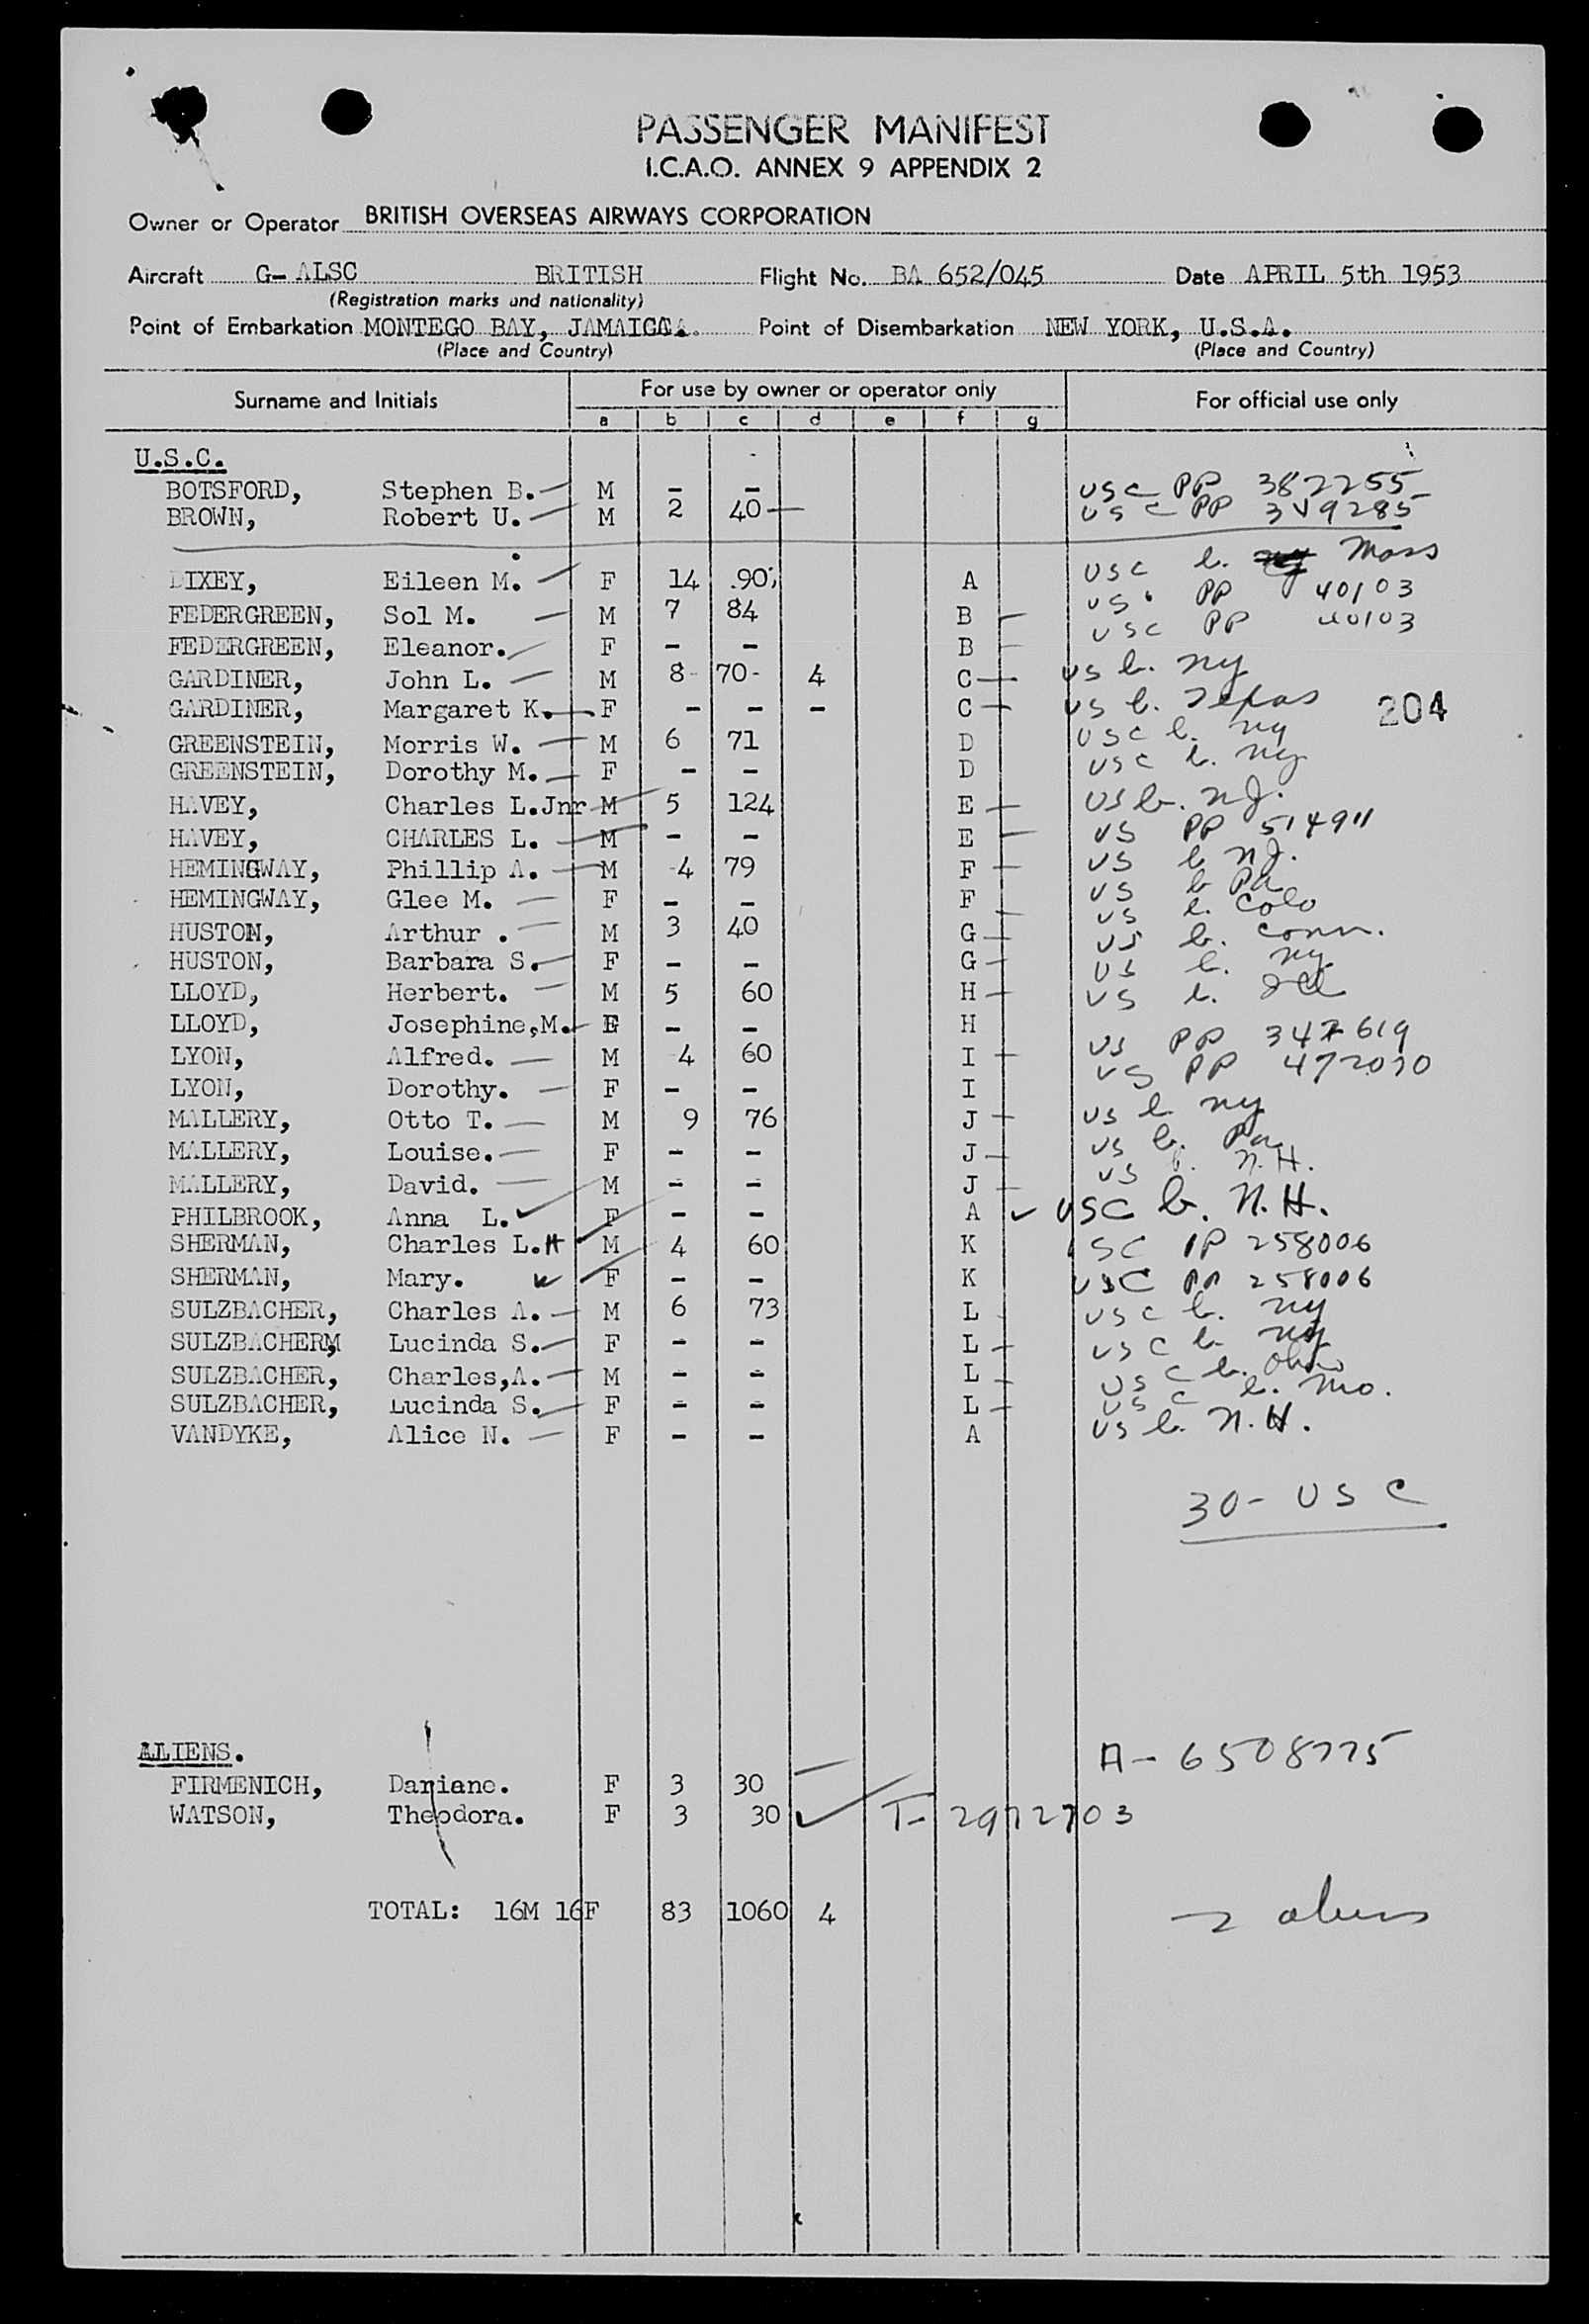 PASSENGER MANIFEST
I.C.A.O. ANNEX 9 APPENDIX 2
Owner or Operator BRITISH OVERSEAS AIRWAYS CORPORATION
Aircraft G- ALSC BRITISH Flight No. BA 652/045 Date APRIL 5th 1953
(Registration marks and nationality)
Point of Embarkation MONTEGO BAY, JAMAICA. Point of Disembarkation NEW YORK, U.S.A.
(Place and Country) (Place and Country)
Surname and Initials For use by owner or operator only For official use only
a b c d e f g
U.S.C.
BOTSFORD, Stephen B. M - - USC PP 382255
BROWN, Robert U. M 2 40 USC PP 349285
DIXEY, Eileen M. F 14 90 A USC b. Mass
FEDERGREEN, Sol M. M 7 84 B US PP 40103
FEDERGREEN, Eleanor. F - - B USC PP 40103
GARDINER, John L. M 8 70 4 C US b. NY
GARDINER, Margaret K. F - - - C US b. Texas 204
GREENSTEIN, Morris W. M 6 71 D USC b. NY
GREENSTEIN, Dorothy M. F - - D USC b. NY
HAVEY, Charles L.Jnr M 5 124 E US b. N.J.
HAVEY, CHARLES L. M - - E US PP 514911
HEMINGWAY, Phillip A. M 4 79 F US b N.J.
HEMINGWAY, Glee M. F - - F US b Pa
HUSTON, Arthur . M 3 40 G US b. Colo
HUSTON, Barbara S. F - - G US b. Conn.
LLOYD, Herbert. M 5 60 H US b. NY
LLOYD, Josephine,M. F - - H US b.
LYON, Alfred. M 4 60 I US PP 347619
LYON, Dorothy. F - - I US PP 472070
MALLERY, Otto T. M 9 76 J US b NY
MALLERY, Louise. F - - J US b. Pa
MALLERY, David. M - - J US b. N.H.
PHILBROOK, Anna L. F - - A USC b. N.H.
SHERMAN, Charles L.H M 4 60 K USC PP 258006
SHERMAN, Mary. F - - K USC PP 258006
SULZBACHER, Charles A. M 6 73 L USC b. NY
SULZBACHERM, Lucinda S. F - - L USC b. NY
SULZBACHER, Charles,A. M - - L USC b. Ohio
SULZBACHER, Lucinda S. F - - L USC b. Mo.
VANDYKE, Alice N. F - - A US b. N.H.
30- USC
ALIENS.
A- 6508775
FIRMENICH, Daniane. F 3 30
WATSON, Theodora. F 3 30 T- 2972703
TOTAL: 16M 16F 83 1060 4 2 aliens